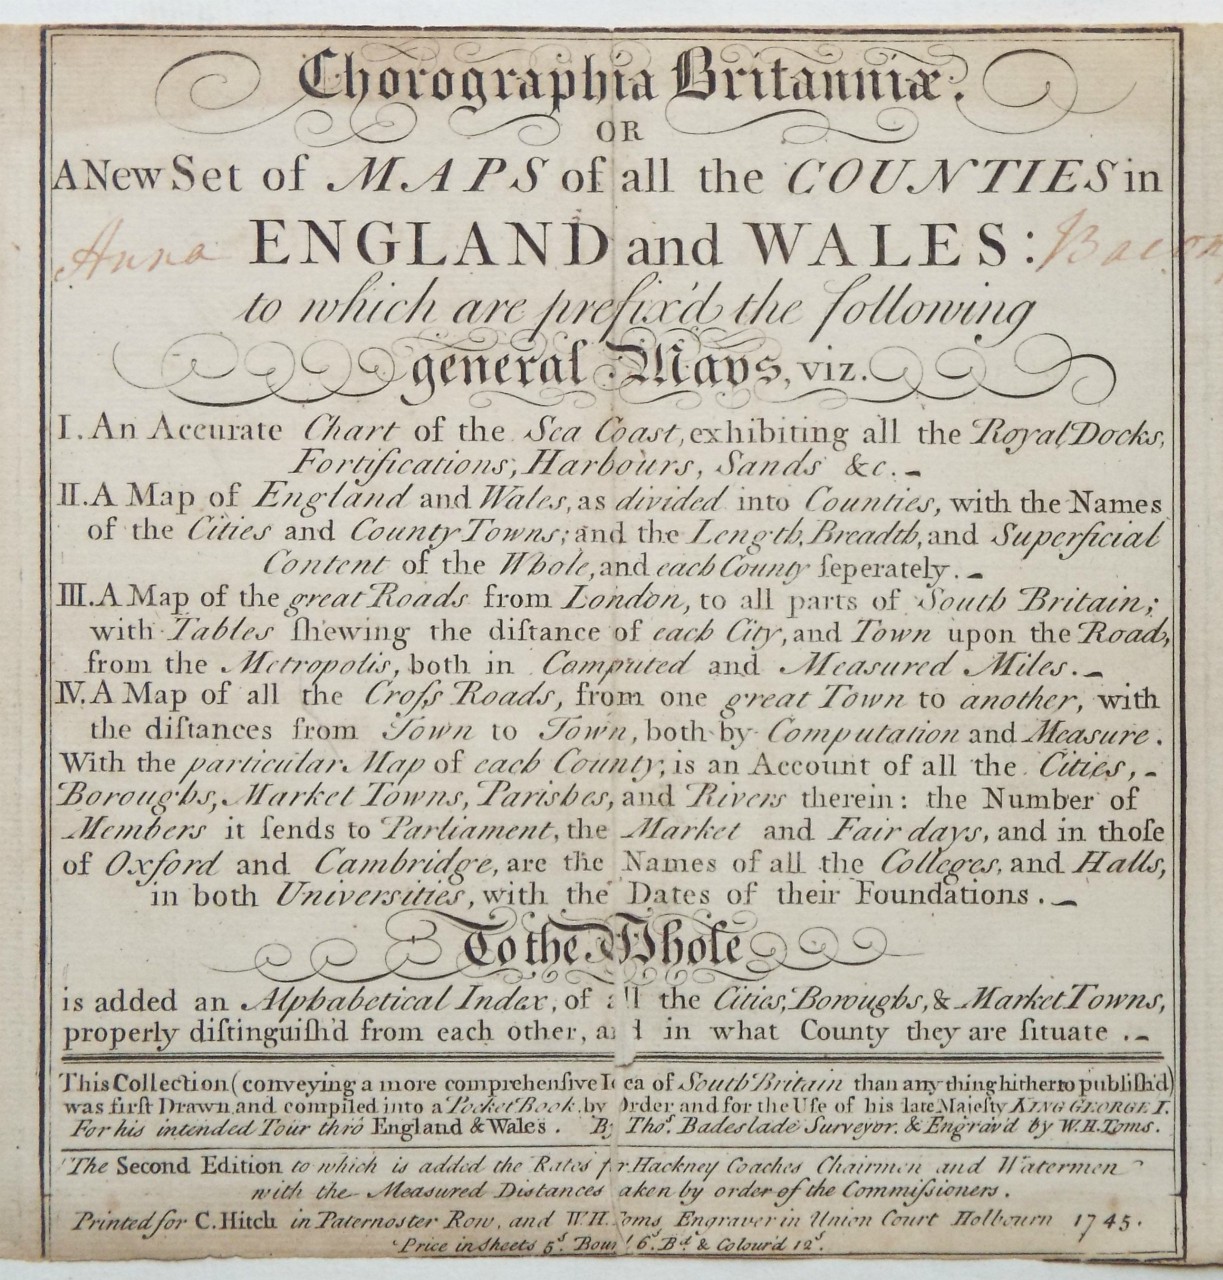 Chorographia Britanniæ.
OR
A New Set of MAPS of all the COUNTIES in
Anna ENGLAND and WALES: Bacon
to which are prefix'd the following
general Maps, viz.
I. An Accurate Chart of the Sea Coast, exhibiting all the Royal Docks,
Fortifications, Harbours, Sands &c. –
II. A Map of England and Wales, as divided into Counties, with the Names
of the Cities and County Towns; and the Length, Breadth, and Superficial
Content of the Whole, and each County ſeperately. –
III. A Map of the great Roads from London, to all parts of South Britain;
with Tables ſhewing the diſtance of each City, and Town upon the Road,
from the Metropolis, both in Computed and Measured Miles. –
IV. A Map of all the Croſs Roads, from one great Town to another, with
the diſtances from Town to Town, both by Computation and Measure.
With the particular Map of each County, is an Account of all the Cities, –
Boroughs, Market Towns, Parishes, and Rivers therein: the Number of
Members it ſends to Parliament, the Market and Fair days, and in thoſe
of Oxford and Cambridge, are the Names of all the Colleges, and Halls,
in both Universities, with the Dates of their Foundations. –
To the Whole
is added an Alphabetical Index, of all the Cities, Boroughs, & Market Towns,
properly diſtinguiſh'd from each other, and in what County they are ſituate. –
This Collection (conveying a more comprehenſive Idea of South Britain than any thing hitherto publiſh'd)
was firſt Drawn, and compiled into a Pocket Book, by Order and for the Uſe of his late Majeſty KING GEORGE I.
For his intended Tour thro England & Wales. By Thos. Badeslade Surveyor. & Engrav'd by W.H. Toms.
The Second Edition to which is added the Rates for Hackney Coaches Chairmen and Watermen
with the Measured Distances taken by order of the Commiſsioners.
Printed for C. Hitch in Paternoster Row, and W.H. Toms Engraver in Union Court Holbourn 1745.
Price in Sheets 5s. Boun 6s. Bd. & Colour'd 12s.